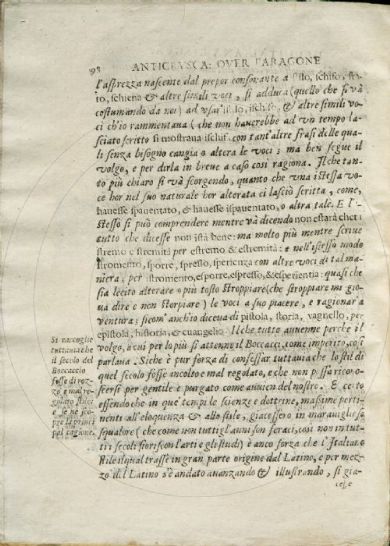 98 ANTICRVSCA: OVER PARAGONE
l'asprezza nascente dal prepor consonante a stilo, schifo, sta-
to, schiena & altre simili voci, si adduca (quello che si và
costumando da noi) ad vsar istilo, ischifo, & altre simili vo-
ci ch'io rammentaua (che non hauerebbe ad vn tempo la-
sciato scritto si mostraua ischif. con tant'altre frasi delle qua-
li senza bisogno cangia o altera le voci; ma ben segue il
volgo, e per dirla in breue a caso così ragiona. Il che tan-
to più chiaro si và scorgendo, quanto che vna istessa vo-
ce hor nel suo naturale hor alterata ci lasciò scritta, come,
hauesse spauentato, & hauesse ispauentato, o altra tale. E l'i-
stesso si può comprendere mentre và dicendo non estarà chet
tutto che dicesse non istà bene: ma molto più mentre scriue
stremo e stremità per estremo & estremità: e nell'istesso modo
stromento, sporre, spresso, sperienza con altre voci di tal ma-
niera; per istromento, esporre, espresso, & esperientia: quasi che
sia lecito alterare o più tosto stroppiare (che stroppiare mi gio-
ua dire e non storpiare) le voci a suo piacere, e ragionar a
ventura; sicom' anchio diceua di pistola, storia, vagnello, per
epistola, historia, & euangelio. Il che tutto auuenne perche il
volgo, a cui per lo più si attenne il Boccacci, come imperito, così
parlaua. Siche è pur forza di confessar tuttauia che lo stil di
quel secolo fosse incolto e mal regolato, e che non possa ricono-
scersi per gentile e purgato come auuien del nostro. E certo
essendo che in que' tempi le scienze e dottrine, massime perti-
nenti all'eloquenza & allo stile, giacessero in marauiglioso
squalore (che come non tutti gl'anni son feraci, così non in tut-
ti i secoli fioriscon l'arti e gli studi) è anco forza che l'Italiano
stile il qual trasse in gran parte origine dal Latino, e per mez-
zo del Latino s'è andato auanzando & illustrando, si gia-
cese
Si raccoglie
tuttauia che
il secolo del
Boccaccio
fosse di roz-
zo e mal re-
golato stile
e se ne scuo-
pre la princi-
pal cagione.